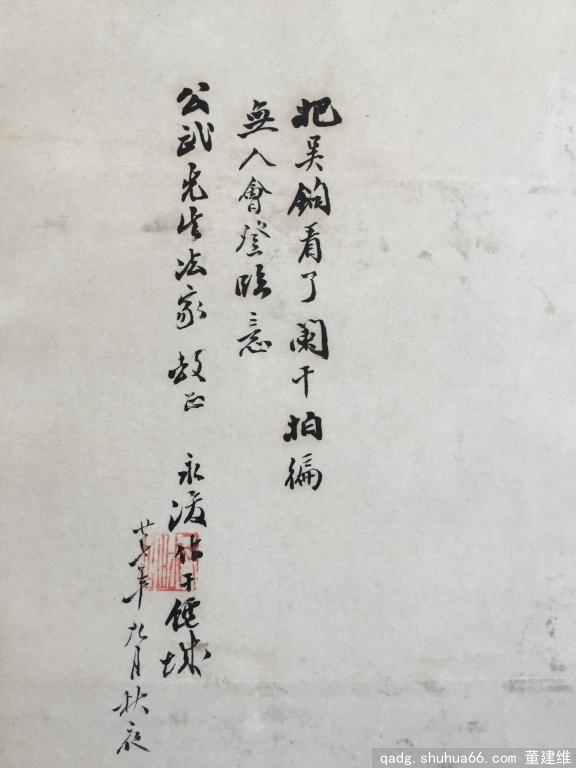 把吴鉤看了闌干拍徧
無人會登臨意
公武先生法家教正 永湲作于 城
廿七年九月秋夜
qadg.shuhua66.com 董建维